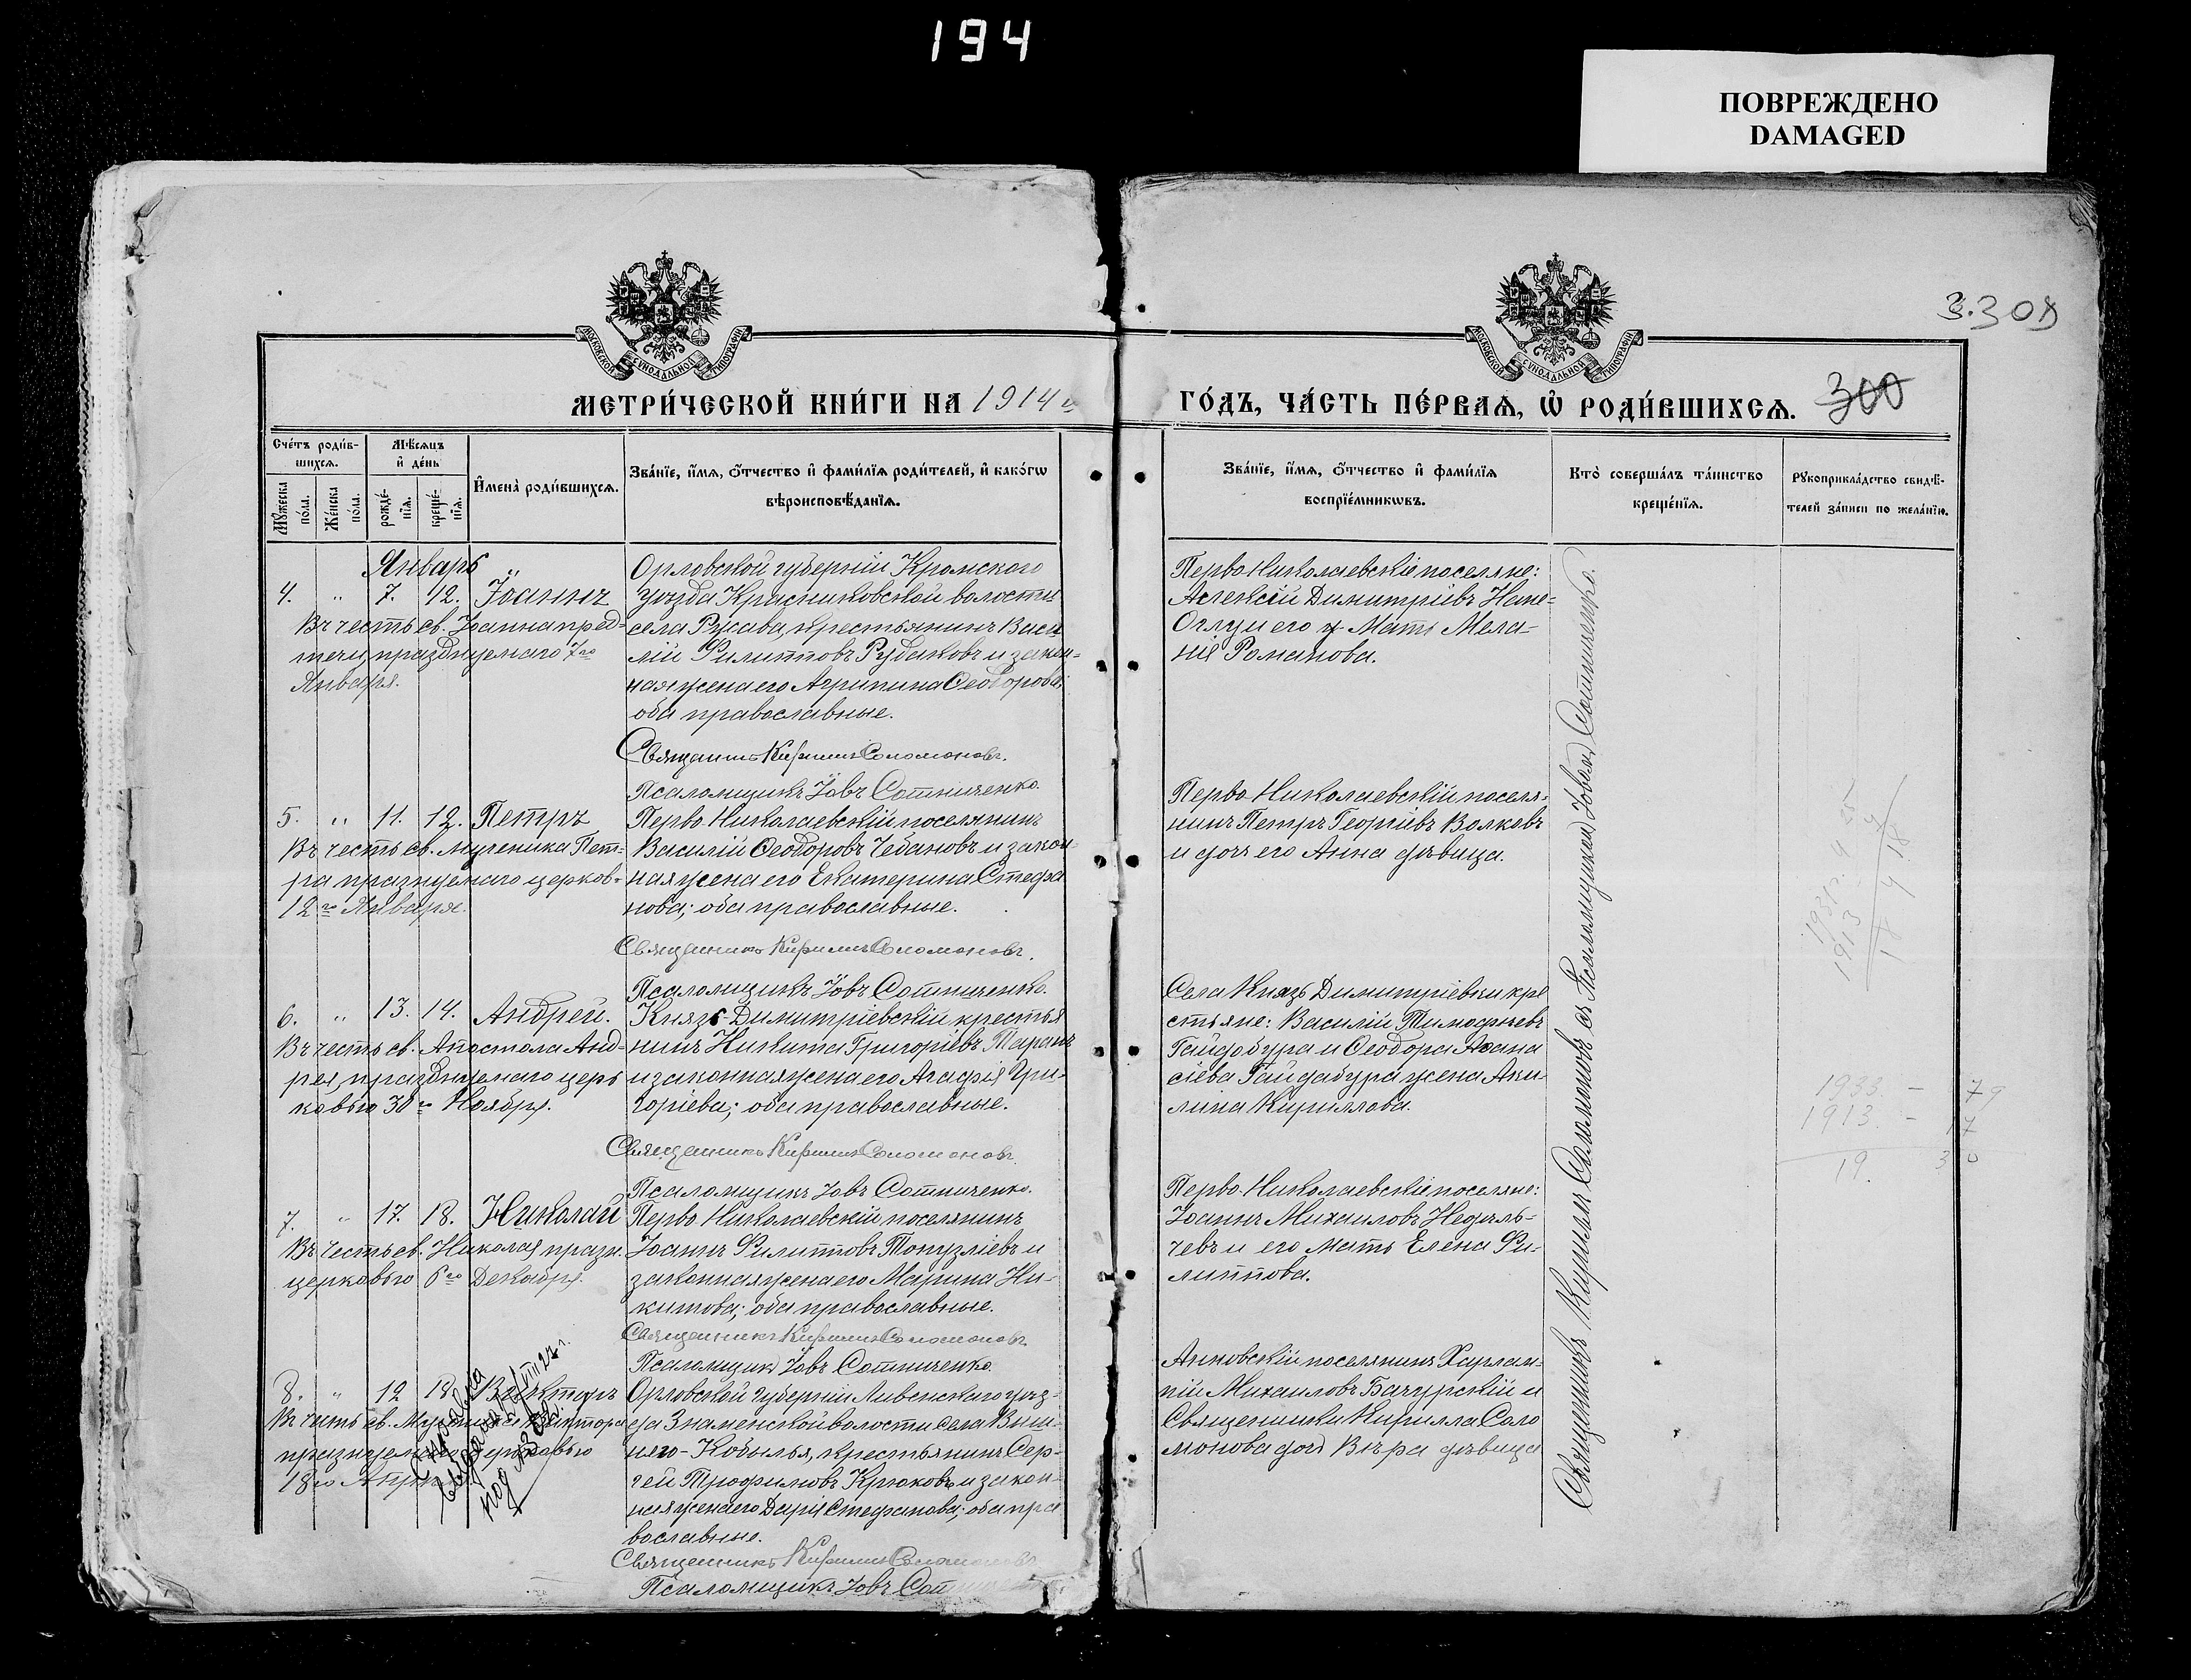 194
ПОВРЕЖДЕНО
DAMAGED
3.308
МОСКОВСКОЙ СѴНОДАЛЬНОЙ ТИПОГРАФІИ
МОСКОВСКОЙ СѴНОДАЛЬНОЙ ТИПОГРАФІИ
МЕТРИ́ЧЕСКОЙ КНИ́ГИ НА 1914 й
ГО́ДЪ, ЧА́СТЬ ПЕ́РВАѦ, Ѡ҆ РОДИ́ВШИХСѦ.
300
Сче́тъ роди́в-
шихсѧ.
Мѣ́сѧцъ
и҆ де́нь
Мꙋ́жеска по́ла.
Же́нска по́ла.
рожде́-нїѧ.
креще́-нїѧ.
И҆мена̀ роди́вшихсѧ.
Зва́нїе, и҆́мѧ, ѻ҆́тчество и҆ фами́лїѧ роди́телей, и҆ како́гѡ
вѣроисповѣ́данїѧ.
Зва́нїе, и҆́мѧ, ѻ҆́тчество и҆ фами́лїѧ
воспрїе́мникѡвъ.
Кто̀ соверша́лъ та́инство
креще́нїѧ.
Рꙋкоприкла́дство свидѣ́-
телей за́писи по жела́нїю.
Январь
4. " 7. 12. Іоаннъ
Въ честь св. Іоанна пред-
течи, празднуемаго 7го
Января.
Орловской губерніи Кромского
уѣзда Красниковской волости
села Русава, крестьянинъ Васи
лій Филипповъ Рудаковъ и закон-
ная жена его Агрипина Ѳеодорова;
оба православные.
Священникъ Кириллъ Соломоновъ.
Псаломщикъ Іовъ Сотниченко.
Перво-Николаевскіе поселяне:
Алексій Димитріевъ Напе-
Оглу и его Мать Мела-
нія Романова.
5. " 11. 12. Петръ
Въ честь св. мученика Пет-
ра празнуемаго церков-
12го Января.
Перво-Николаевскій поселянинъ
Василій Ѳеодоровъ Чебановъ и закон-
ная жена его Екатерина Стефа
нова; оба православные.
Священникъ Кириллъ Соломоновъ.
Псаломщикъ Іовъ Сотниченко.
Перво-Николаевскій поселя-
нинъ Петръ Георгіевъ Волковъ
и дочь его Анна дѣвица.
6. " 13. 14. Андрей.
Въ честь св. Апостола Анд-
рея, празднуемаго церь
ковью 30го Ноября.
Князь-Димитріевскій крестья
нинъ Никита Григоріевъ Таранъ
и законная жена его Агафія Гри-
горіева; оба православные.
Священникъ Кириллъ Соломоновъ.
Псаломщикъ Іовъ Сотниченко.
Села Князь Димитріевки кре
стьяне: Василій Тимофѣевъ
Гайдобура и Ѳеодора Аѳана
сіева Гайдабура жена Аки-
лина Кириллова.
7. " 17. 18. Николай
Въ честь св. Николая празн.
церковью 6го Декабря.
Перво Николаевскій поселянинъ
Іоаннъ Филипповъ Топузліевъ и
законная жена его Марина Ни-
китова; оба православные.
Священникъ Кириллъ Соломоновъ
Псаломщикъ Іовъ Сотниченко.
Перво-Николаевскіе поселяне:
Іоаннъ Михаиловъ Недѣль-
чевъ и его Мать Елена Фи-
липпова.
8. " 12 18 Викторъ
Въ честь св. Мученика Виктора
празнуемаго церковью
18го Апр
Орловской губерніи Ливенскаго уѣз-
да Знаменской волости села Выш-
няго-Кобылья, крестьянинъ Сер-
гей Трофимовъ Крюковъ и закон-
ная жена его Дарія Стефанова; оба пра
вославные.
Священникъ Кириллъ Соломоновъ
Псаломщикъ Іовъ Сот
Анновскій поселянинъ Харлам-
пій Михаиловъ Бачурскій и
Священника Кирилла Соло
монова дочь Вѣра дѣвица
Священникъ Кириллъ Соломоновъ съ Псаломщикомъ Іовомъ Сотниченко.
выдана
под №
1913
18
1933. - 79
1913. - 17
19. 30